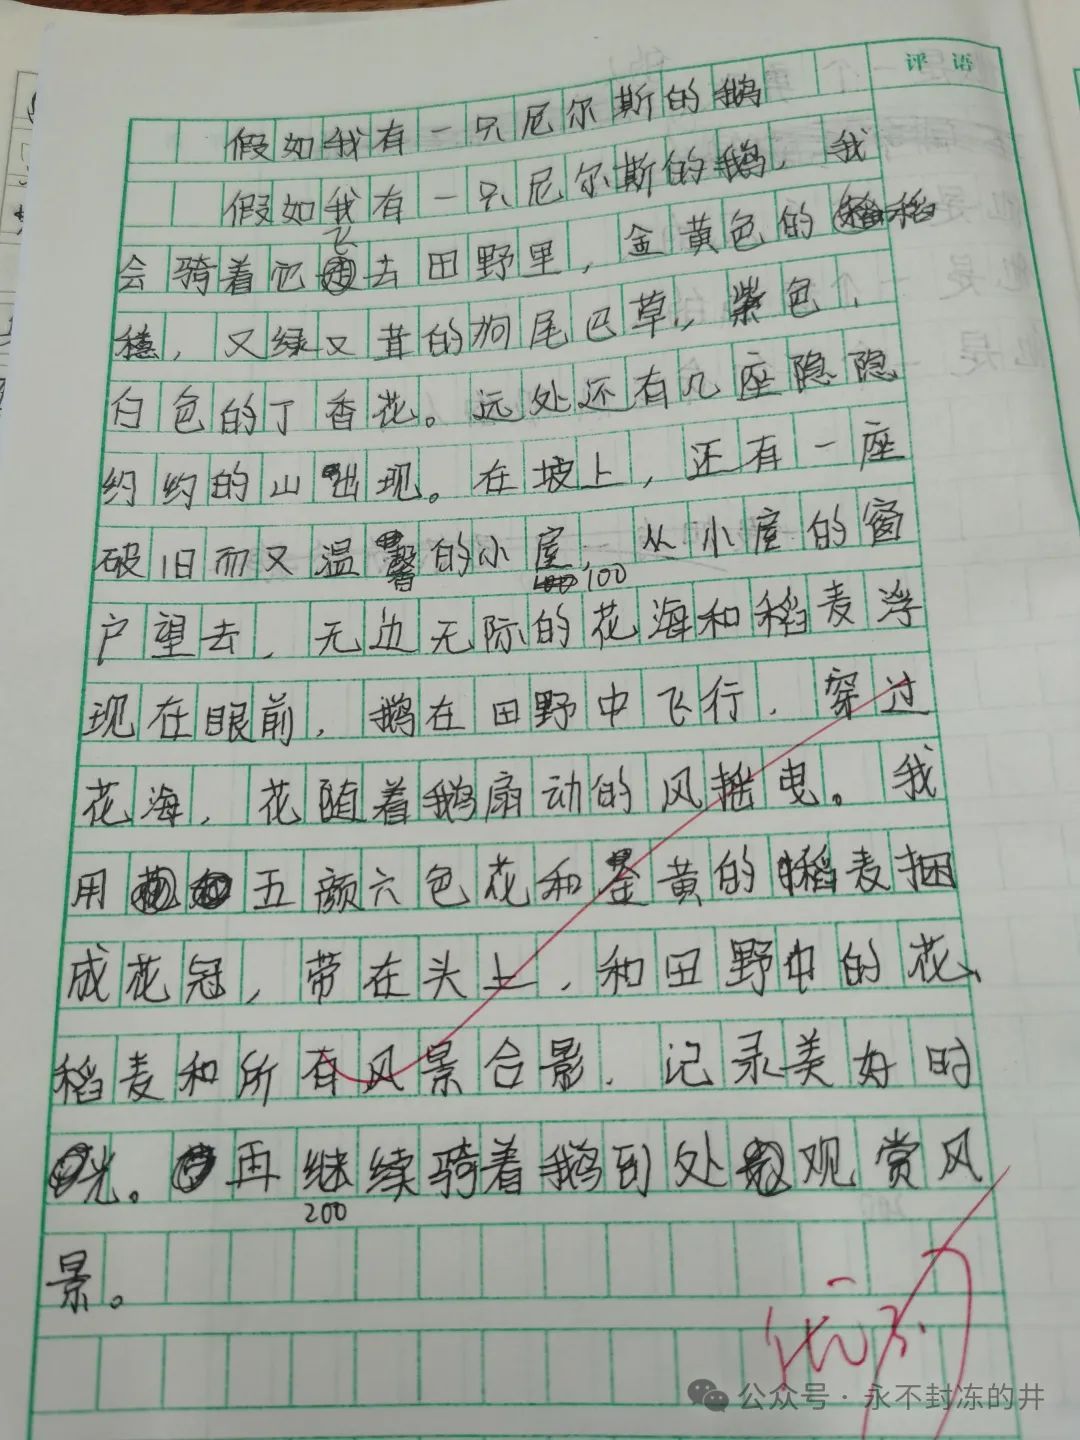 评 语
假如我有一只尼尔斯的鹅
假如我有一只尼尔斯的鹅，我
会骑着它飞去田野里，金黄色的稻
穗，又绿又茸的狗尾巴草，紫色、
白色的丁香花。远处还有几座隐隐
约约的山出现。在坡上，还有一座
破旧而又温馨的小屋，从小屋的窗
100
户望去，无边无际的花海和稻麦浮
现在眼前，鹅在田野中飞行，穿过
花海，花随着鹅扇动的风摇曳。我
用五颜六色花和金黄的稻麦捆
成花冠，带在头上，和田野中的花、
稻麦和所有风景合影，记录美好时
光。再继续骑着鹅到处观赏风
200
景。
优
公众号·永不封冻的井